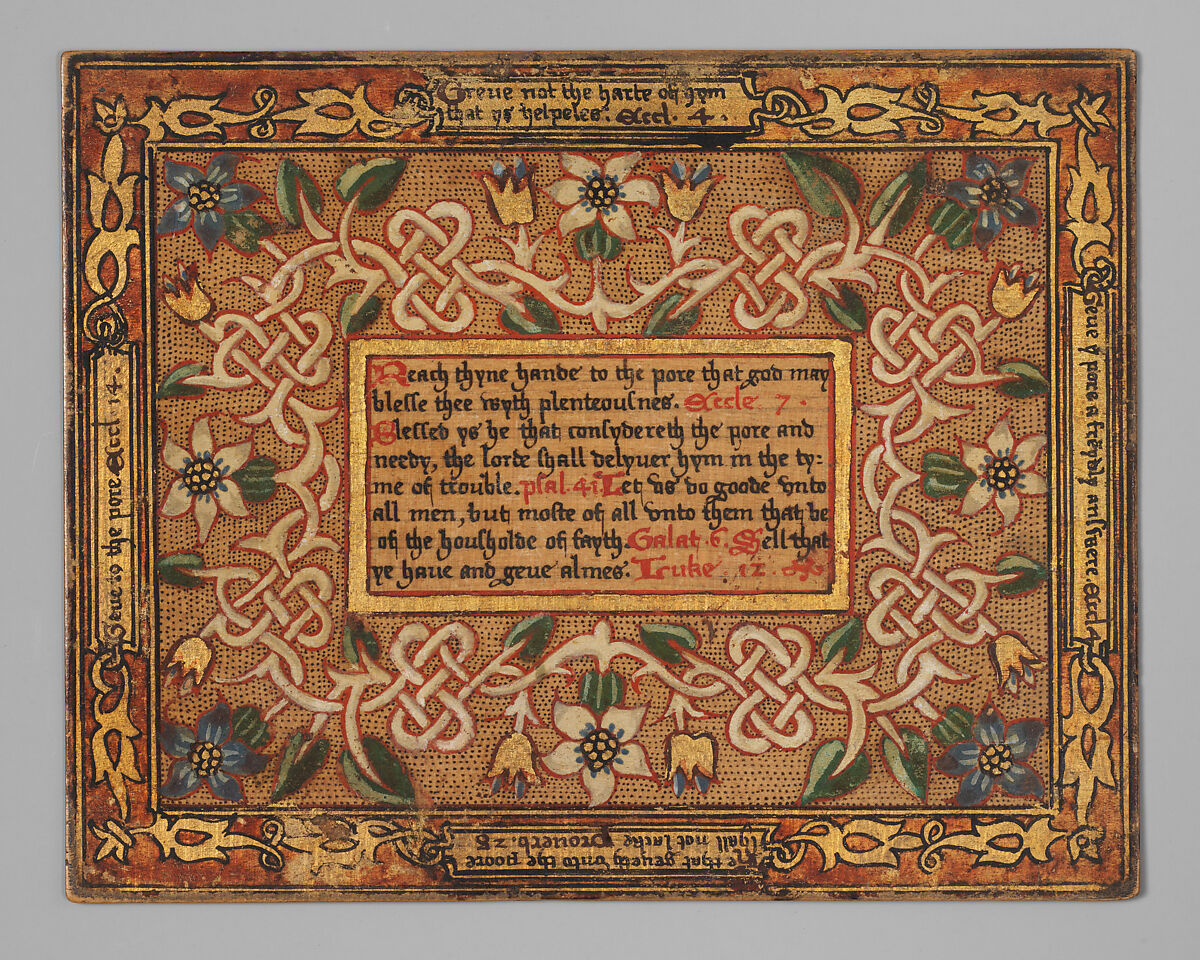 Greue not the harte of hym
that ys helpeles. Eccl. 4.
Geue yͤ pore a frēdly answere. Eccl 4
Reach thyne hande to the pore that god may
blesse thee wyth plenteousnes. Eccle 7.
Blessed ys he that consydereth the pore and
needy, the lorde shall delyuer hym in the ty:
me of trouble. psal. 41 Let vs do goode vnto
all men, but moste of all vnto them that be
of the housholde of fayth. Galat 6. Sell that
ye haue and geue almes. Luke. 12.
He that geueth vnto the poore
shall not lacke Prouerb. 28
Geue to the pore Eccl. 14.